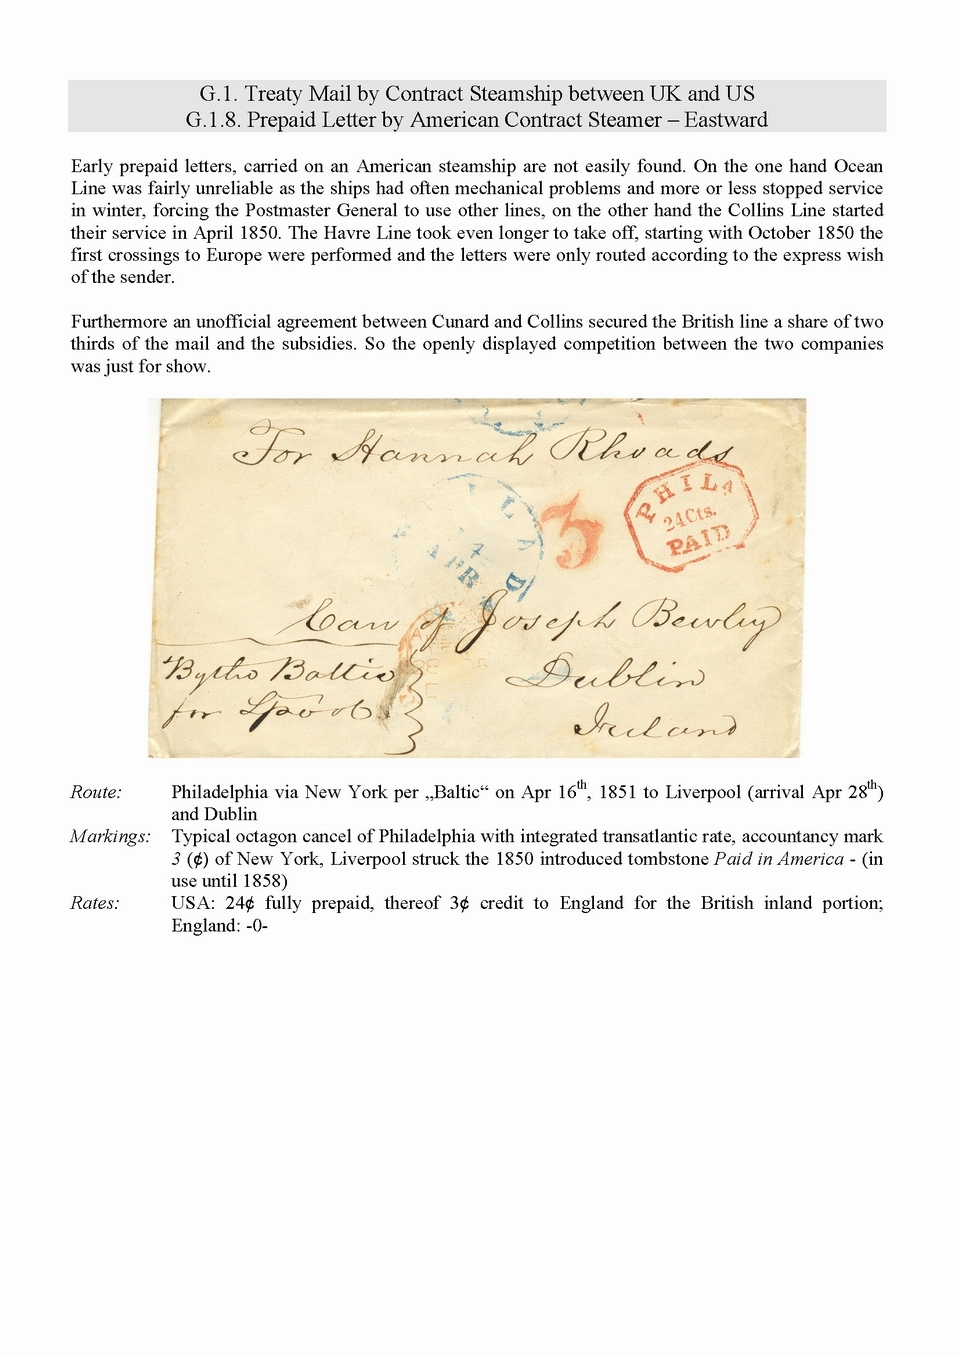 G.1. Treaty Mail by Contract Steamship between UK and US
G.1.8. Prepaid Letter by American Contract Steamer – Eastward
Early prepaid letters, carried on an American steamship are not easily found. On the one hand Ocean
Line was fairly unreliable as the ships had often mechanical problems and more or less stopped service
in winter, forcing the Postmaster General to use other lines, on the other hand the Collins Line started
their service in April 1850. The Havre Line took even longer to take off, starting with October 1850 the
first crossings to Europe were performed and the letters were only routed according to the express wish
of the sender.
Furthermore an unofficial agreement between Cunard and Collins secured the British line a share of two
thirds of the mail and the subsidies. So the openly displayed competition between the two companies
was just for show.
For Hannah Rhoads
PHILA
24Cts.
PAID
3
APR
Care of Joseph Bewley
Dublin
Ireland
By the Baltic
for Lpool
Route: Philadelphia via New York per „Baltic“ on Apr 16th, 1851 to Liverpool (arrival Apr 28th)
and Dublin
Markings: Typical octagon cancel of Philadelphia with integrated transatlantic rate, accountancy mark
3 (¢) of New York, Liverpool struck the 1850 introduced tombstone Paid in America - (in
use until 1858)
Rates: USA: 24¢ fully prepaid, thereof 3¢ credit to England for the British inland portion;
England: -0-